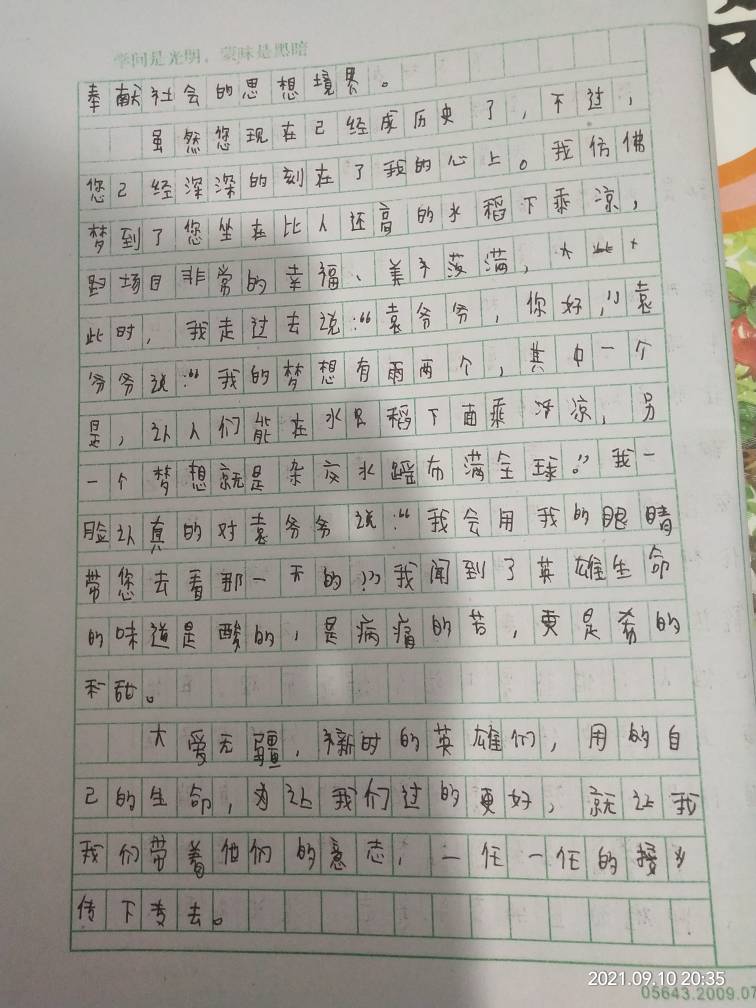 学问是光明，蒙昧是黑暗
奉献社会的思想境界。
虽然您现在已经成历史了，不过，
您已经深深的刻在了我的心上。我仿佛
梦到了您坐在比人还高的水稻下乘凉，
场目非常的幸福、美满，
此时，我走过去说：“袁爷爷，你好，”袁
爷爷说：“我的梦想有雨两个，其中一个
是，让人们能在水稻下面乘凉，另
一个梦想就是杂交水蹈布满全球。”我一
脸认真的对袁爷爷说：“我会用我的眼睛
带您去看那一天的”我闻到了英雄生命
的味道是酸的，是病痛的苦，更是希的
和甜。
大爱无疆，新时的英雄们，用的自
己的生命，为让我们过的更好，就让我
我们带着他们的意志，一任一任的接
传下去。
2021.09.10 20:35
05643.2009.07